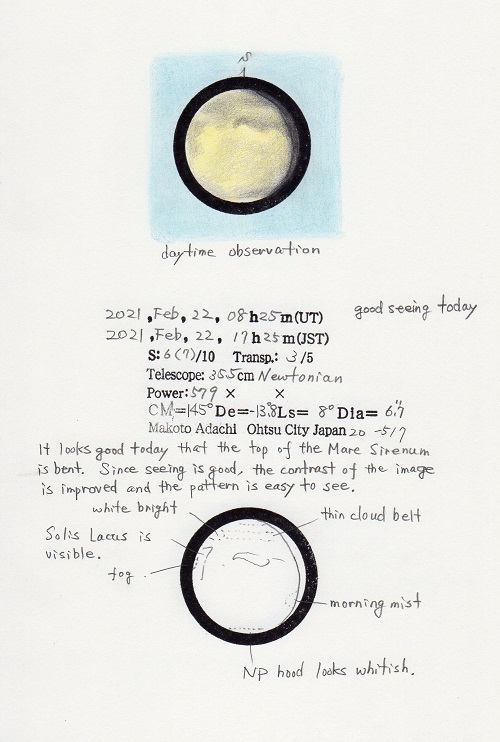 S
daytime observation
2021, Feb, 22, 08h25m(UT)
good seeing today
2021, Feb, 22, 17h25m(JST)
S: 6(7)/10 Transp.: 3/5
Telescope: 35.5cm Newtonian
Power: 579 × ×
CM=145° De=-13.8 Ls= 8° Dia= 6".7
Makoto Adachi Ohtsu City Japan 20 -517
It looks good today that the top of the Mare Sirenum
is bent. Since seeing is good, the contrast of the image
is improved and the pattern is easy to see.
white bright
thin cloud belt
Solis Lacus is
visible.
fog
morning mist
NP hood looks whitish.